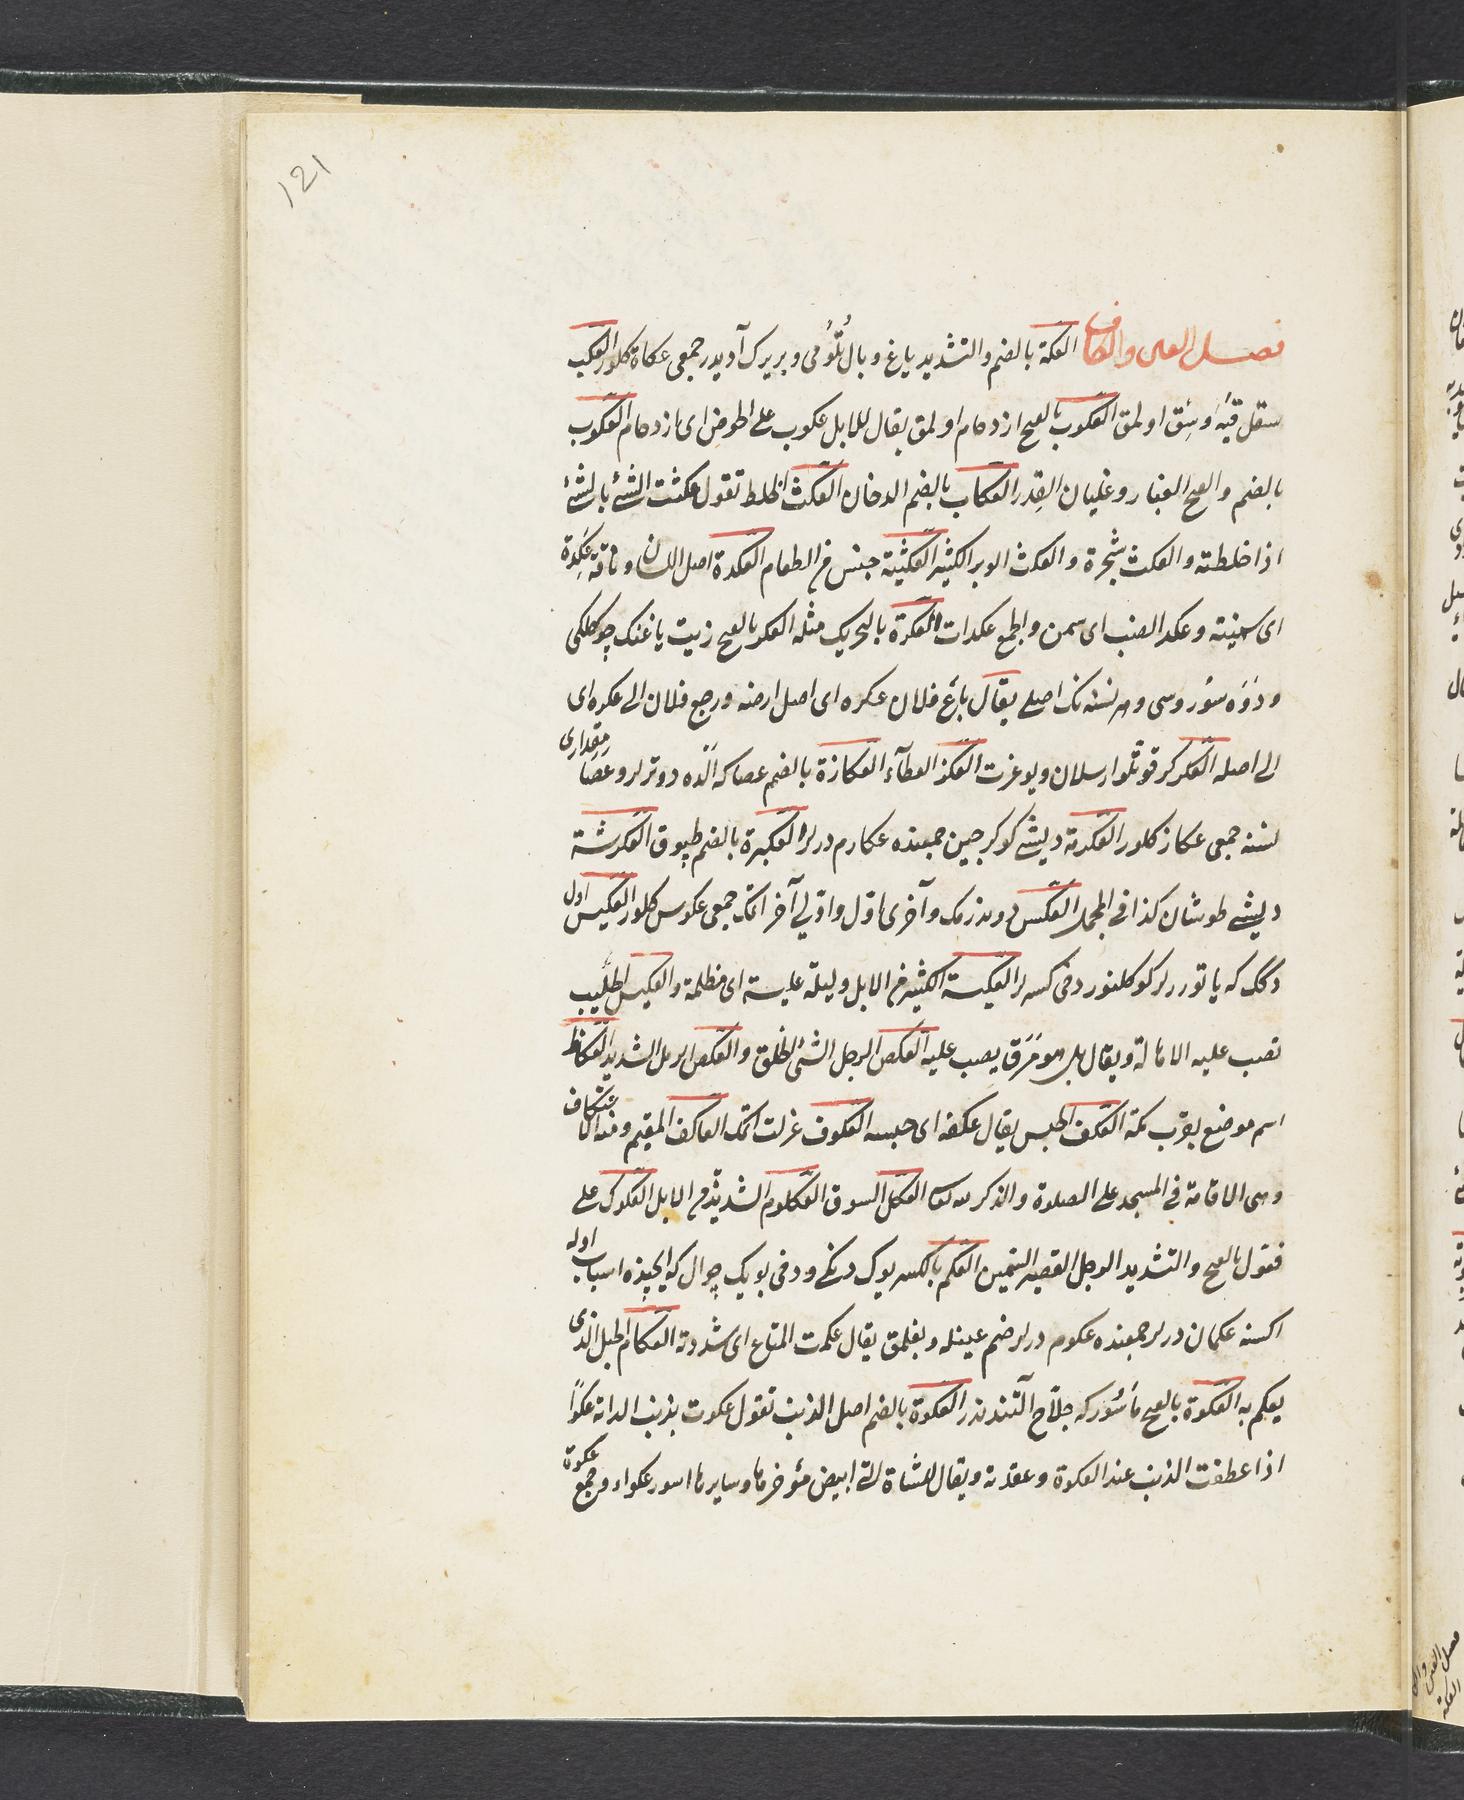 121
فصل العين والكاف العكة بالضم والتشديد ياغ وبال تلومى وبر يرك آديدر جمعى عكاة كلور العكب
سقل قيه وسق اولمق العكوب بالفتح ازدحام اولمق يقال للابل عكوب على الحوض اى ازدحام العكوب
بالضم والفتح الغبار وغليان القدر العكاب بالضم الدخان العكث الخلط تقول عكثت الشئ بالشئ
اذا خلطته والعكث شجرة والعكث الوبر الكثير العكيثة جنس من الطعام العكدة اصل اللسان وناقة عكدة
اى سمينة وعكد الضب اى سمن والجمع عكدات العكرة بالتحريك مثله العكر بالفتح زيت ياغنك چوكلكى
ودوه سوروسى وهر نسنه نك اصلى يقال باع فلان عكره اى اصل ارضه ورجع فلان الى عكره اى
الى اصله العكركر قوتلو ارسلان ويوغرت العكز العطآء العكازة بالضم عصا كه الده دوترلر وعصا مقدارى
نسنه جمعى عكاز كلور العكرمة ديشى كوكرجين جمعنده عكارم درلر العكبرة بالضم طپوق العكرشة
ديشى طوشان كذا فى المجمل العكس دوندرمك وآخرى اول واولى آخر اتمك جمعى عكوس كلور العكيس اول
دكك كه ياتوررلر كوكلنور دخى كسرلر العكيسة الكثير من الابل وليلة عكيسة اى مظلمة والعكيس الحليب
تصب عليه الاهالة ويقال بل هو مرق يصب عليه العكص الرجل الشئ الخلق والعكص الرمل الشديد العكاظ
اسم موضع بقرب مكة العكف الحبس يقال عكفه اى حبسه العكوف عزلت اتمك العاكف المقيم ومنه الاعتكاف
وهى الاقامة فى المسجد على الصلوة والذكر لله تعالى العكل السوق العكلوم الشديدة من الابل العكوك على
فعول بالفتح والتشديد الرجل القصير السمين العكم بالكسر يوك دنكى ودخى بويك چوال كه ايچنده اسباب اوله
اكسنه عكمان درلر جمعنده عكوم درلر ضم عينله وبغلمق يقال عكمت المتاع اى شددته العكام الحبل الذى
يعكم به العكوة بالفتح ماشوره كه جلاح آلتنده در العكوة بالضم اصل الذنب تقول عكوت بذنب الدابة عكوا
اذا عطفت الذنب عند العكوة وعقدته ويقال للشاة التى ابيض مؤخرها وسايرها اسود عكواء وجمع عكوة